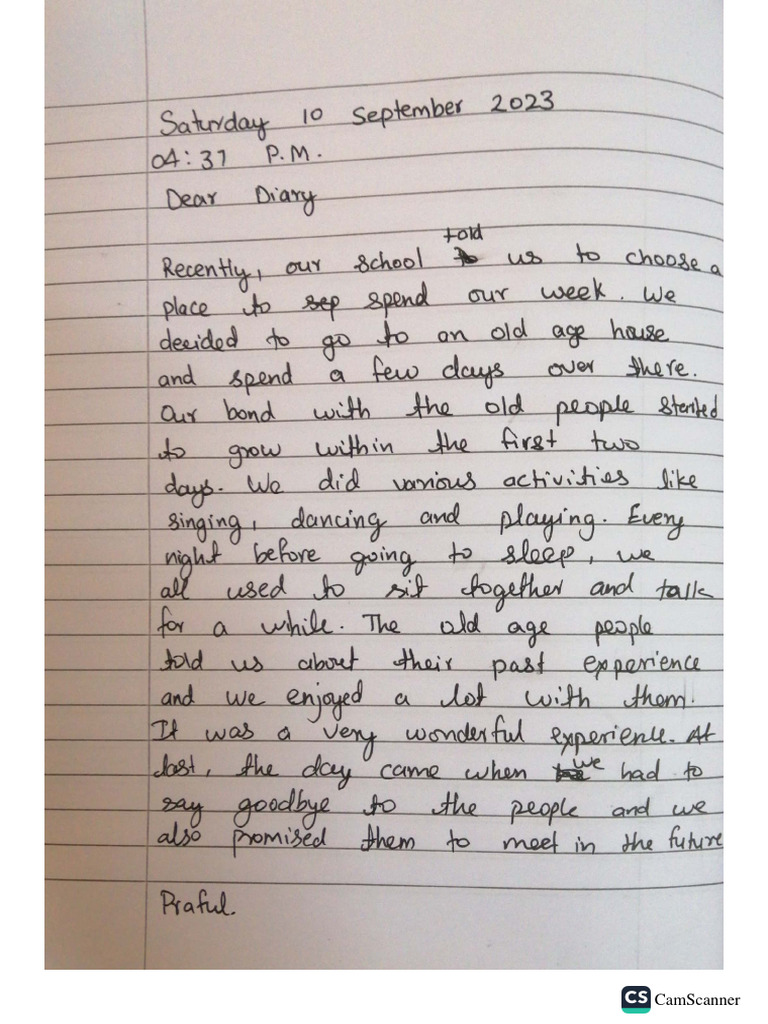 Saturday 10 September 2023
04:37 P.M.
Dear Diary
told
Recently, our school us to choose a
place to sep spend our week. We
decided to go to an old age house
and spend a few days over there.
Our bond with the old people sterited
to grow within the first two
days. We did various activities like
singing, dancing and playing. Every
night before going to sleep, we
all used to sit together and talk
for a while. The old age people
told us about their past experience
and we enjoyed a lot with them.
It was a very wonderful experience. At
last, the day came when we had to
say goodbye to the people and we
also promised them to meet in the future
Praful.
CS CamScanner